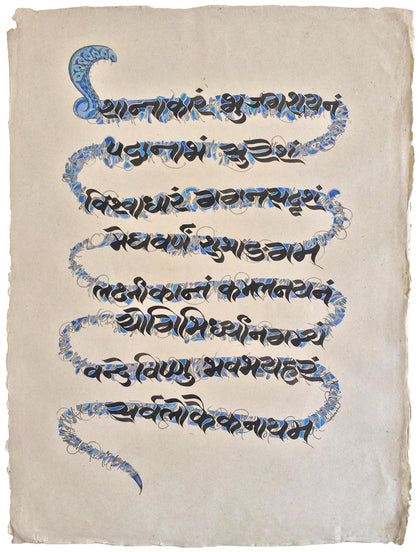 शान्ताकारं भुजगशयनं
पद्मनाभं सुरेशं
विश्वाधारं गगनसदृशं
मेघवर्णं शुभाङगम
लक्ष्मीकान्तं कमलनयनं
योगिभिर्ध्यानगम्यं
वन्दे विष्णु भवभयहरं
सर्वलोकैकनाथम